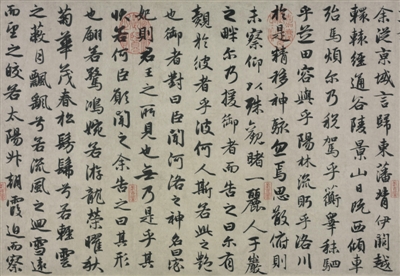 余從京城言歸東藩背伊闕越
轘轅經通谷陵景山日既西傾車
殆馬煩尔乃稅駕乎蘅皋秣駟
乎芝田容與乎陽林流眄乎洛川
於是精移神駭忽焉思散俯則
未察仰以殊觀睹一麗人于巖
之畔尔乃援御者而告之曰尔有
覿於彼者乎彼何人斯若此之豔
也御者對曰臣聞河洛之神名曰宓
妃則君王之所見也無乃是乎其
狀若何臣願聞之余告之曰其形
也翩若驚鴻婉若游龍榮曜秋
菊華茂春松髣髴兮若輕雲
之蔽月飄飄兮若流風之迴雪遠
而望之皎若太陽升朝霞迫而察